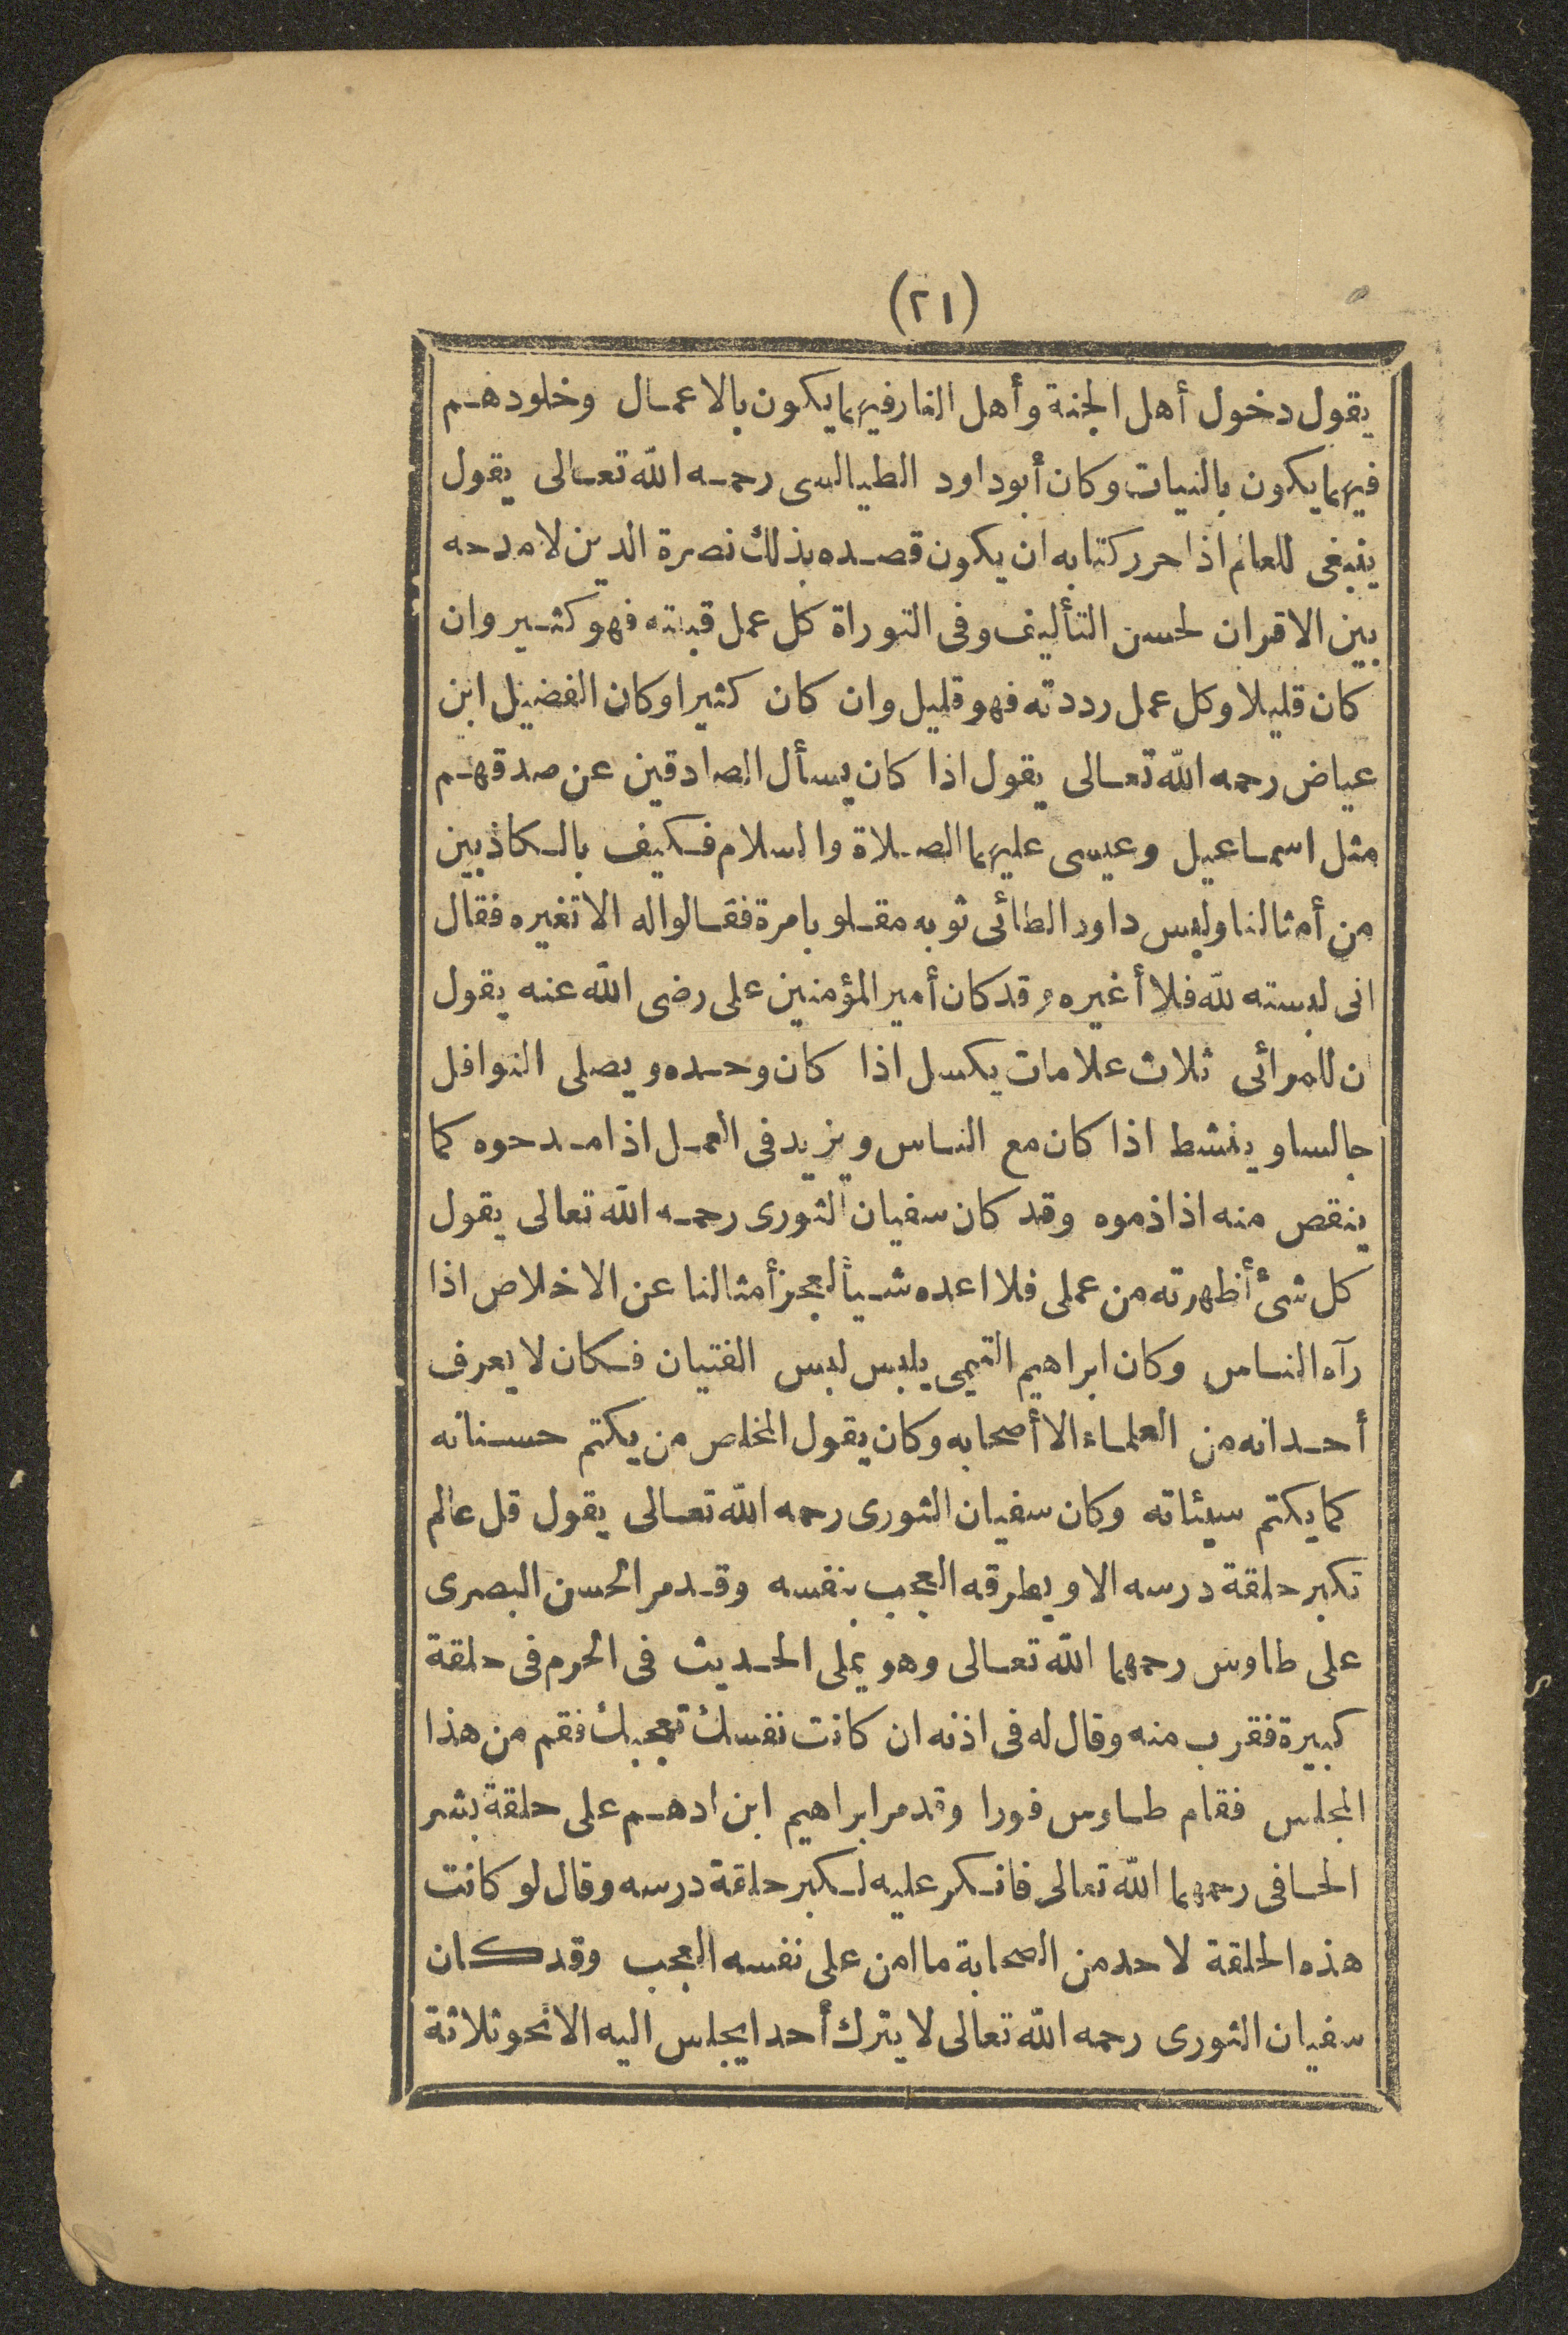 (٢١)
يقول دخول أهل الجنة وأهل النار فيهما يكون بالاعمال وخلودهم
فيهما يكون بالنيات وكان أبوداود الطيالسى رحمه الله تعالى يقول
ينبغى للعالم اذا حرر كتابه ان يكون قصده بذلك نصرة الدين لا مدحه
بين الاقران لحسن التأليف وفى التوراة كل عمل قبلته فهو كثير وان
كان قليلا وكل عمل رددته فهو قليل وان كان كثيرا وكان الفضيل ابن
عياض رحمه الله تعالى يقول اذا كان يسأل الصادقين عن صدقهم
مثل اسماعيل وعيسى عليهما الصلاة والسلام فكيف بالكاذبين
من أمثالنا ولبس داود الطائى ثوبه مقلوبا مرة فقالوا له الا تغيره فقال
انى لبسته لله فلا أغيره وقد كان أمير المؤمنين على رضى الله عنه يقول
ان للمرائى ثلاث علامات يكسل اذا كان وحده ويصلى النوافل
جالسا وينشط اذا كان مع الناس ويزيد فى العمل اذا مدحوه كما
ينقص منه اذا ذموه وقد كان سفيان الثورى رحمه الله تعالى يقول
كل شئ أظهرته من عملى فلا اعده شيأ لعجز أمثالنا عن الاخلاص اذا
رآه الناس وكان ابراهيم التيمى يلبس لبس الفتيان فكان لا يعرف
أحد انه من العلماء الا أصحابه وكان يقول المخلص من يكتم حسناته
كما يكتم سيئاته وكان سفيان الثورى رحمه الله تعالى يقول قل عالم
تكبر حلقة درسه الا ويطرقه العجب بنفسه وقد مر الحسن البصرى
على طاوس رحمهما الله تعالى وهو يملى الحديث فى الحرم فى حلقة
كبيرة فقرب منه وقال له فى اذنه ان كانت نفسك تعجبك فقم من هذا
المجلس فقام طاوس فورا وقد مر ابراهيم ابن ادهم على حلقة بشر
الحافى رحمهما الله تعالى فانكر عليه لكبر حلقة درسه وقال لو كانت
هذه الحلقة لاحد من الصحابة ما امن على نفسه العجب وقد كان
سفيان الثورى رحمه الله تعالى لا يترك أحدا يجلس اليه الا نحو ثلاثة